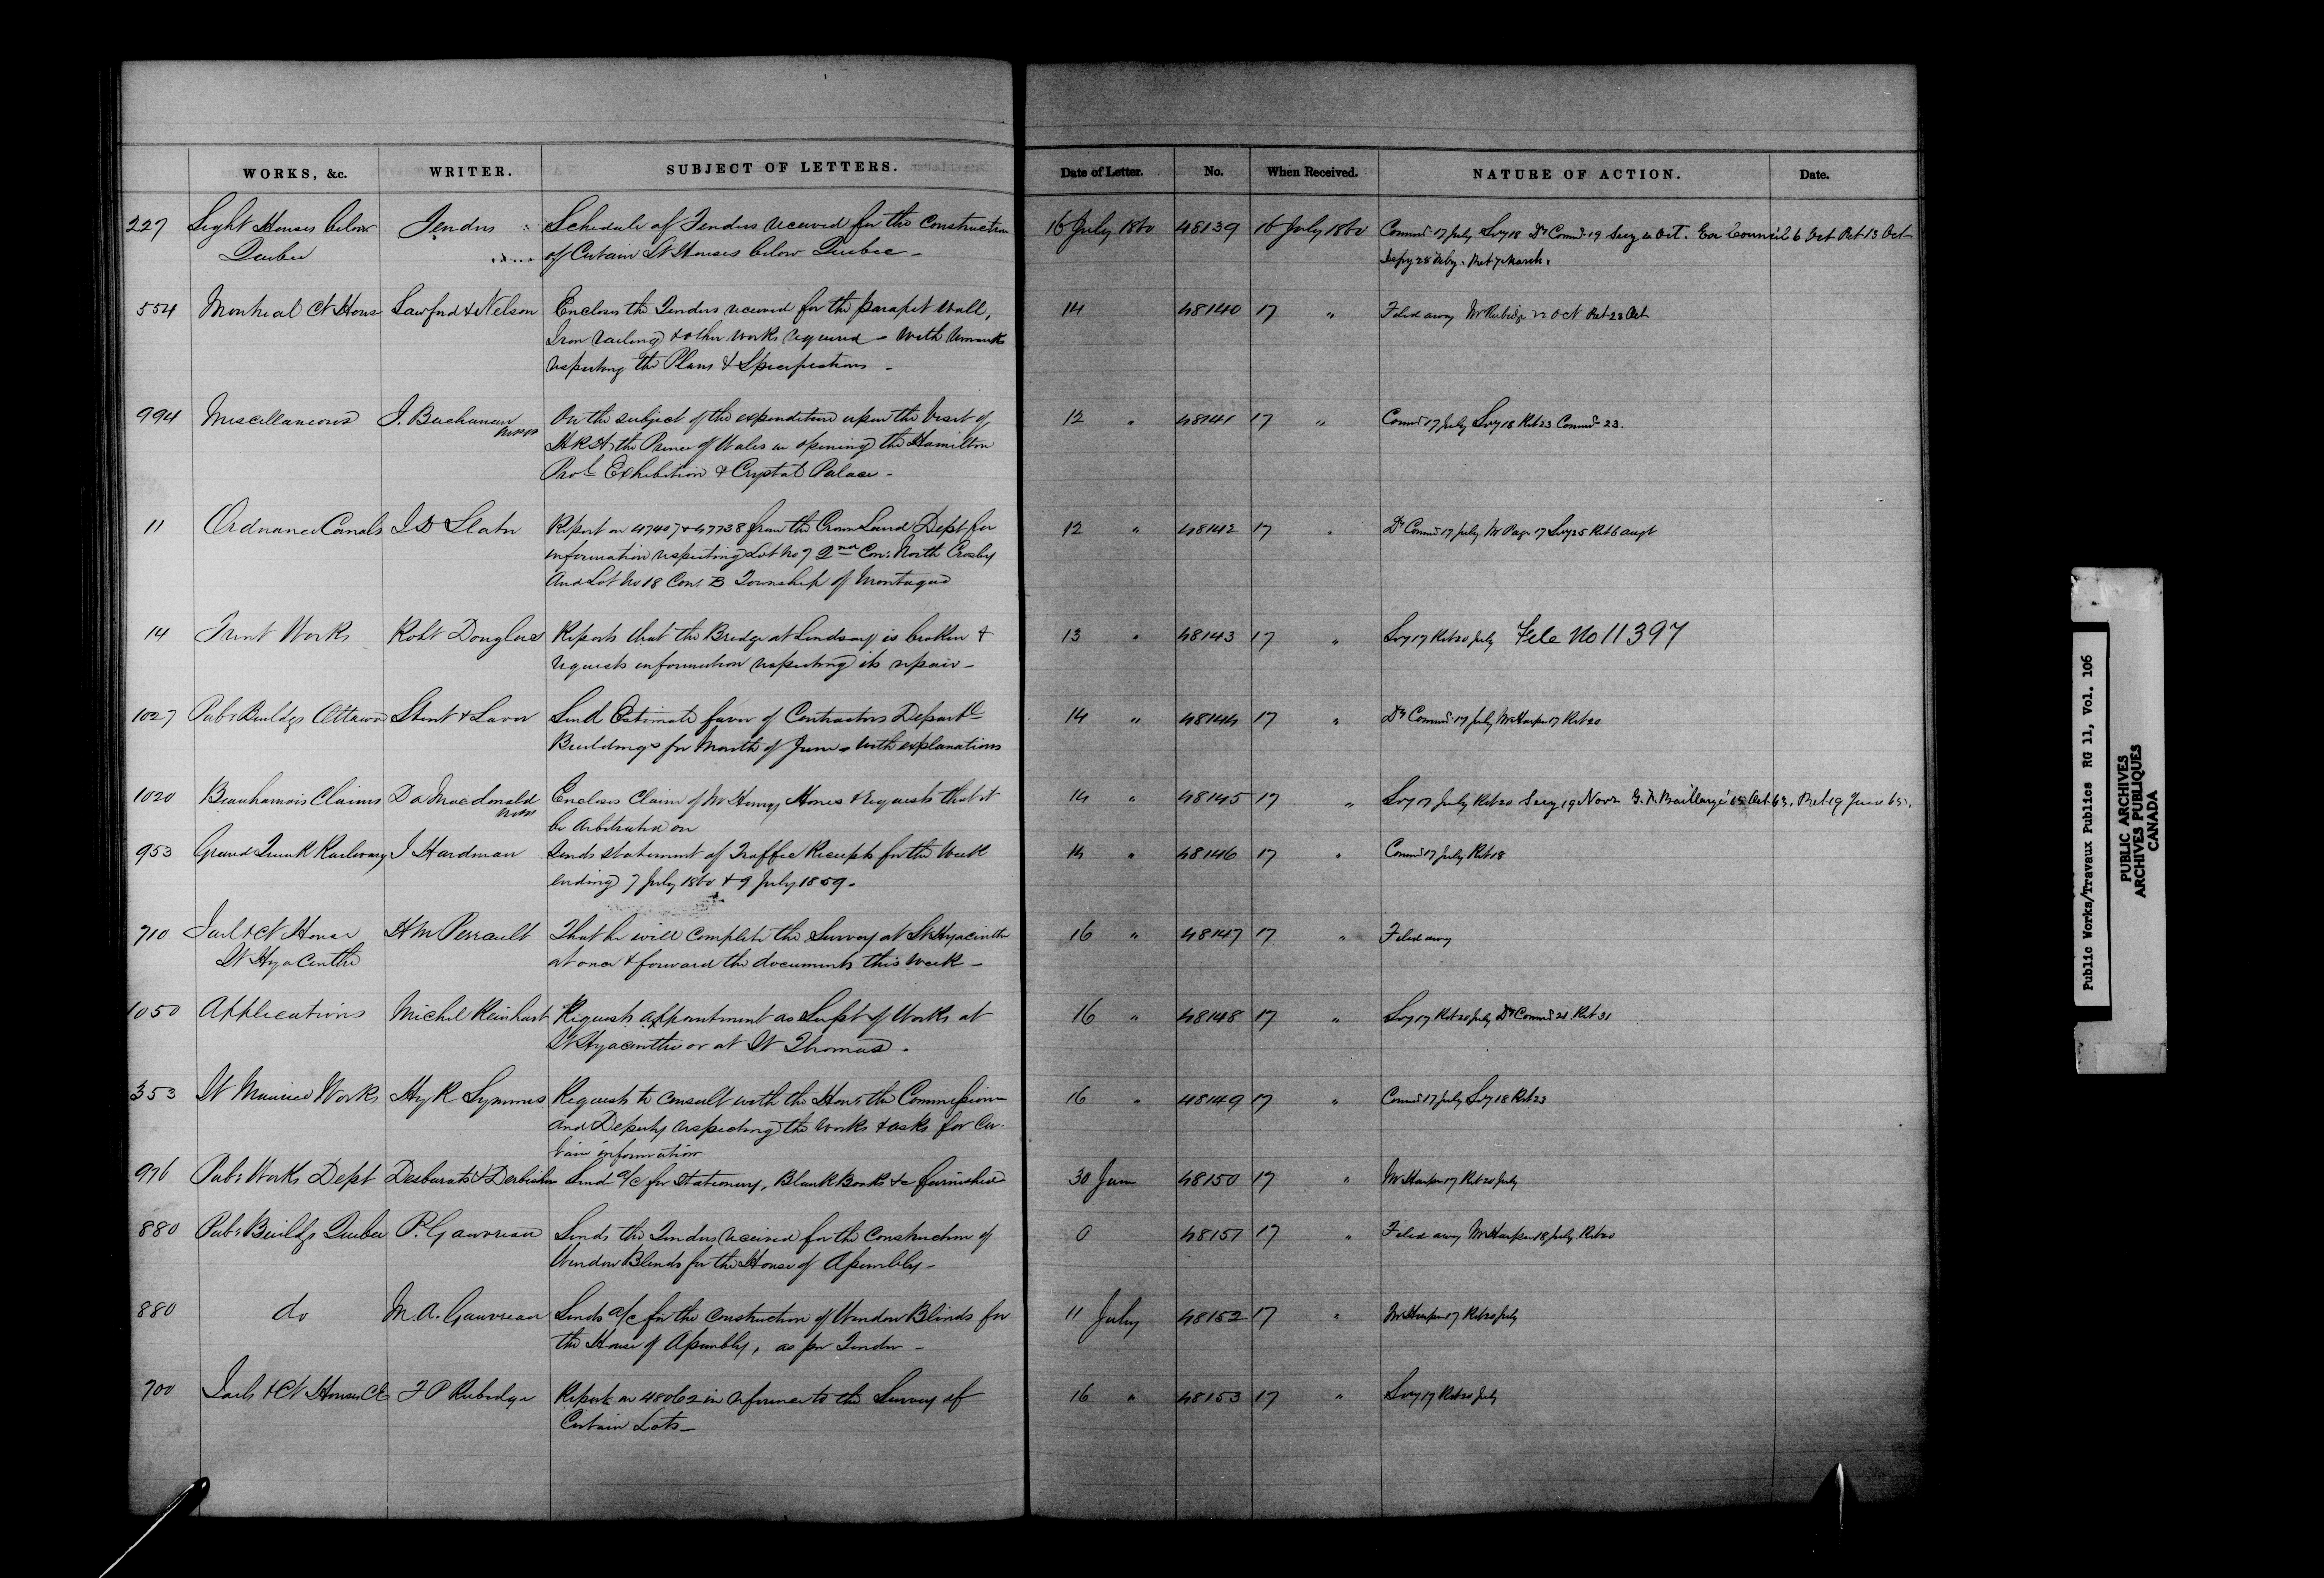 WORKS, &c. WRITER. SUBJECT OF LETTERS. Date of Letter. No. When Received. NATURE OF ACTION. Date.
227 Light Houses below Tenders Schedule of Tenders received for the Construction 16 July 1860 48139 16 July 1860 Commr 17 July Secy 18 Dy Commr 19 Secy Oct. Ex Council 6 Oct Ret 13 Oct
Quebec of Certain Lt Houses below Quebec - Ret 7 March.
554 Montreal Ct House Lawford & Nelson Encloses the Tenders received for the parapet wall, 14 48140 17 " Filed away Mr Rubidge 22 Oct Ret 23 Oct
Iron railing & other works required - with remarks
respecting the Plans & Specifications -
994 Miscellaneous I. Buchanan On the subject of the expenditure upon the visit of 12 " 48141 17 " Commr 17 July Secy 18 Ret 23 Commr 23.
MPP H R H. the Prince of Wales in opening the Hamilton
Provl Exhibition & Crystal Palace -
11 Ordnance Canals J D Slater Report on 47407 & 47738 from the Crown Land Dept for 12 " 48142 17 " Dy Commr 17 July Mr Page 17 Secy 25 Ret 6 augt
information respecting Lot No 7 2nd Con: North Crosby
And Lot No 18 Con: B Township of Montague
14 Trent Works Robt Douglass Reports that the Bridge at Lindsay is broken & 13 " 48143 17 " Secy 17 Ret 20 July File No 11397
requests information respecting its repair -
1027 Pub: Buildgs Ottawa Stent & Laver Send Estimate favor of Contractors Departl 14 " 48144 17 " Dy Commr 17 July Mr Harper 17 Ret 20
Buildings for Month of June - with explanations
1020 Beauharnois Claims D A Macdonald Encloses Claim of Mr Henry Jones & requests that it 14 " 48145 17 " Secy 17 July Ret 20 Secy 19 Novr G. F. Baillargé Oct. 63. Ret 19 June 65.
be Arbitrated on
953 Grand Trunk Railway J Hardman Sends statement of Traffic Receipts for the Week 14 " 48146 17 " Commr 17 July Ret 18
ending 7 July 1860 & 9 July 1859.
710 Jail & Ct House H M Perrault That he will complete the Survey at St Hyacinthe 16 " 48147 17 " Filed away
St Hyacinthe at once & forward the documents this Week -
1050 Applications Michel Reinhart Requests appointment as Supt of Works at 16 " 48148 17 " Secy 17 Ret 20 July Dy Commr 21 Ret 31
St Hyacinthe or at St Thomas.
353 St Maurice Works Hy R Symmes Requests to consult with the Hon: the Commissioner 16 " 48149 17 " Commr 17 July Secy 18 Ret 23
and Deputy respecting the works & asks for Cer-
tain information
976 Pub: Works Dept Desbarats & Derbishire Send a/c for Stationery, Blank Books &c furnished 30 June 48150 17 " Mr Harper 17 Ret 20 July
880 Pub: Buildgs Quebec P. Gauvreau Sends the Tenders received for the Construction of 0 48151 17 " Filed away Mr Harper 18 July Ret 20
Window Blinds for the House of Assembly -
880 do M. A. Gauvreau Sends a/c for the Construction of Window Blinds for 11 July 48152 17 " Mr Harper 17 Ret 20 July
the House of Assembly, as per Tender -
700 Jails & Ct Houses CE F P Rubidge Report on 48062 in reference to the Survey of 16 " 48153 17 " Secy 17 Ret 20 July
Certain Lots -
Public Works/Travaux Publics RG 11, Vol. 106
PUBLIC ARCHIVES
ARCHIVES PUBLIQUES
CANADA